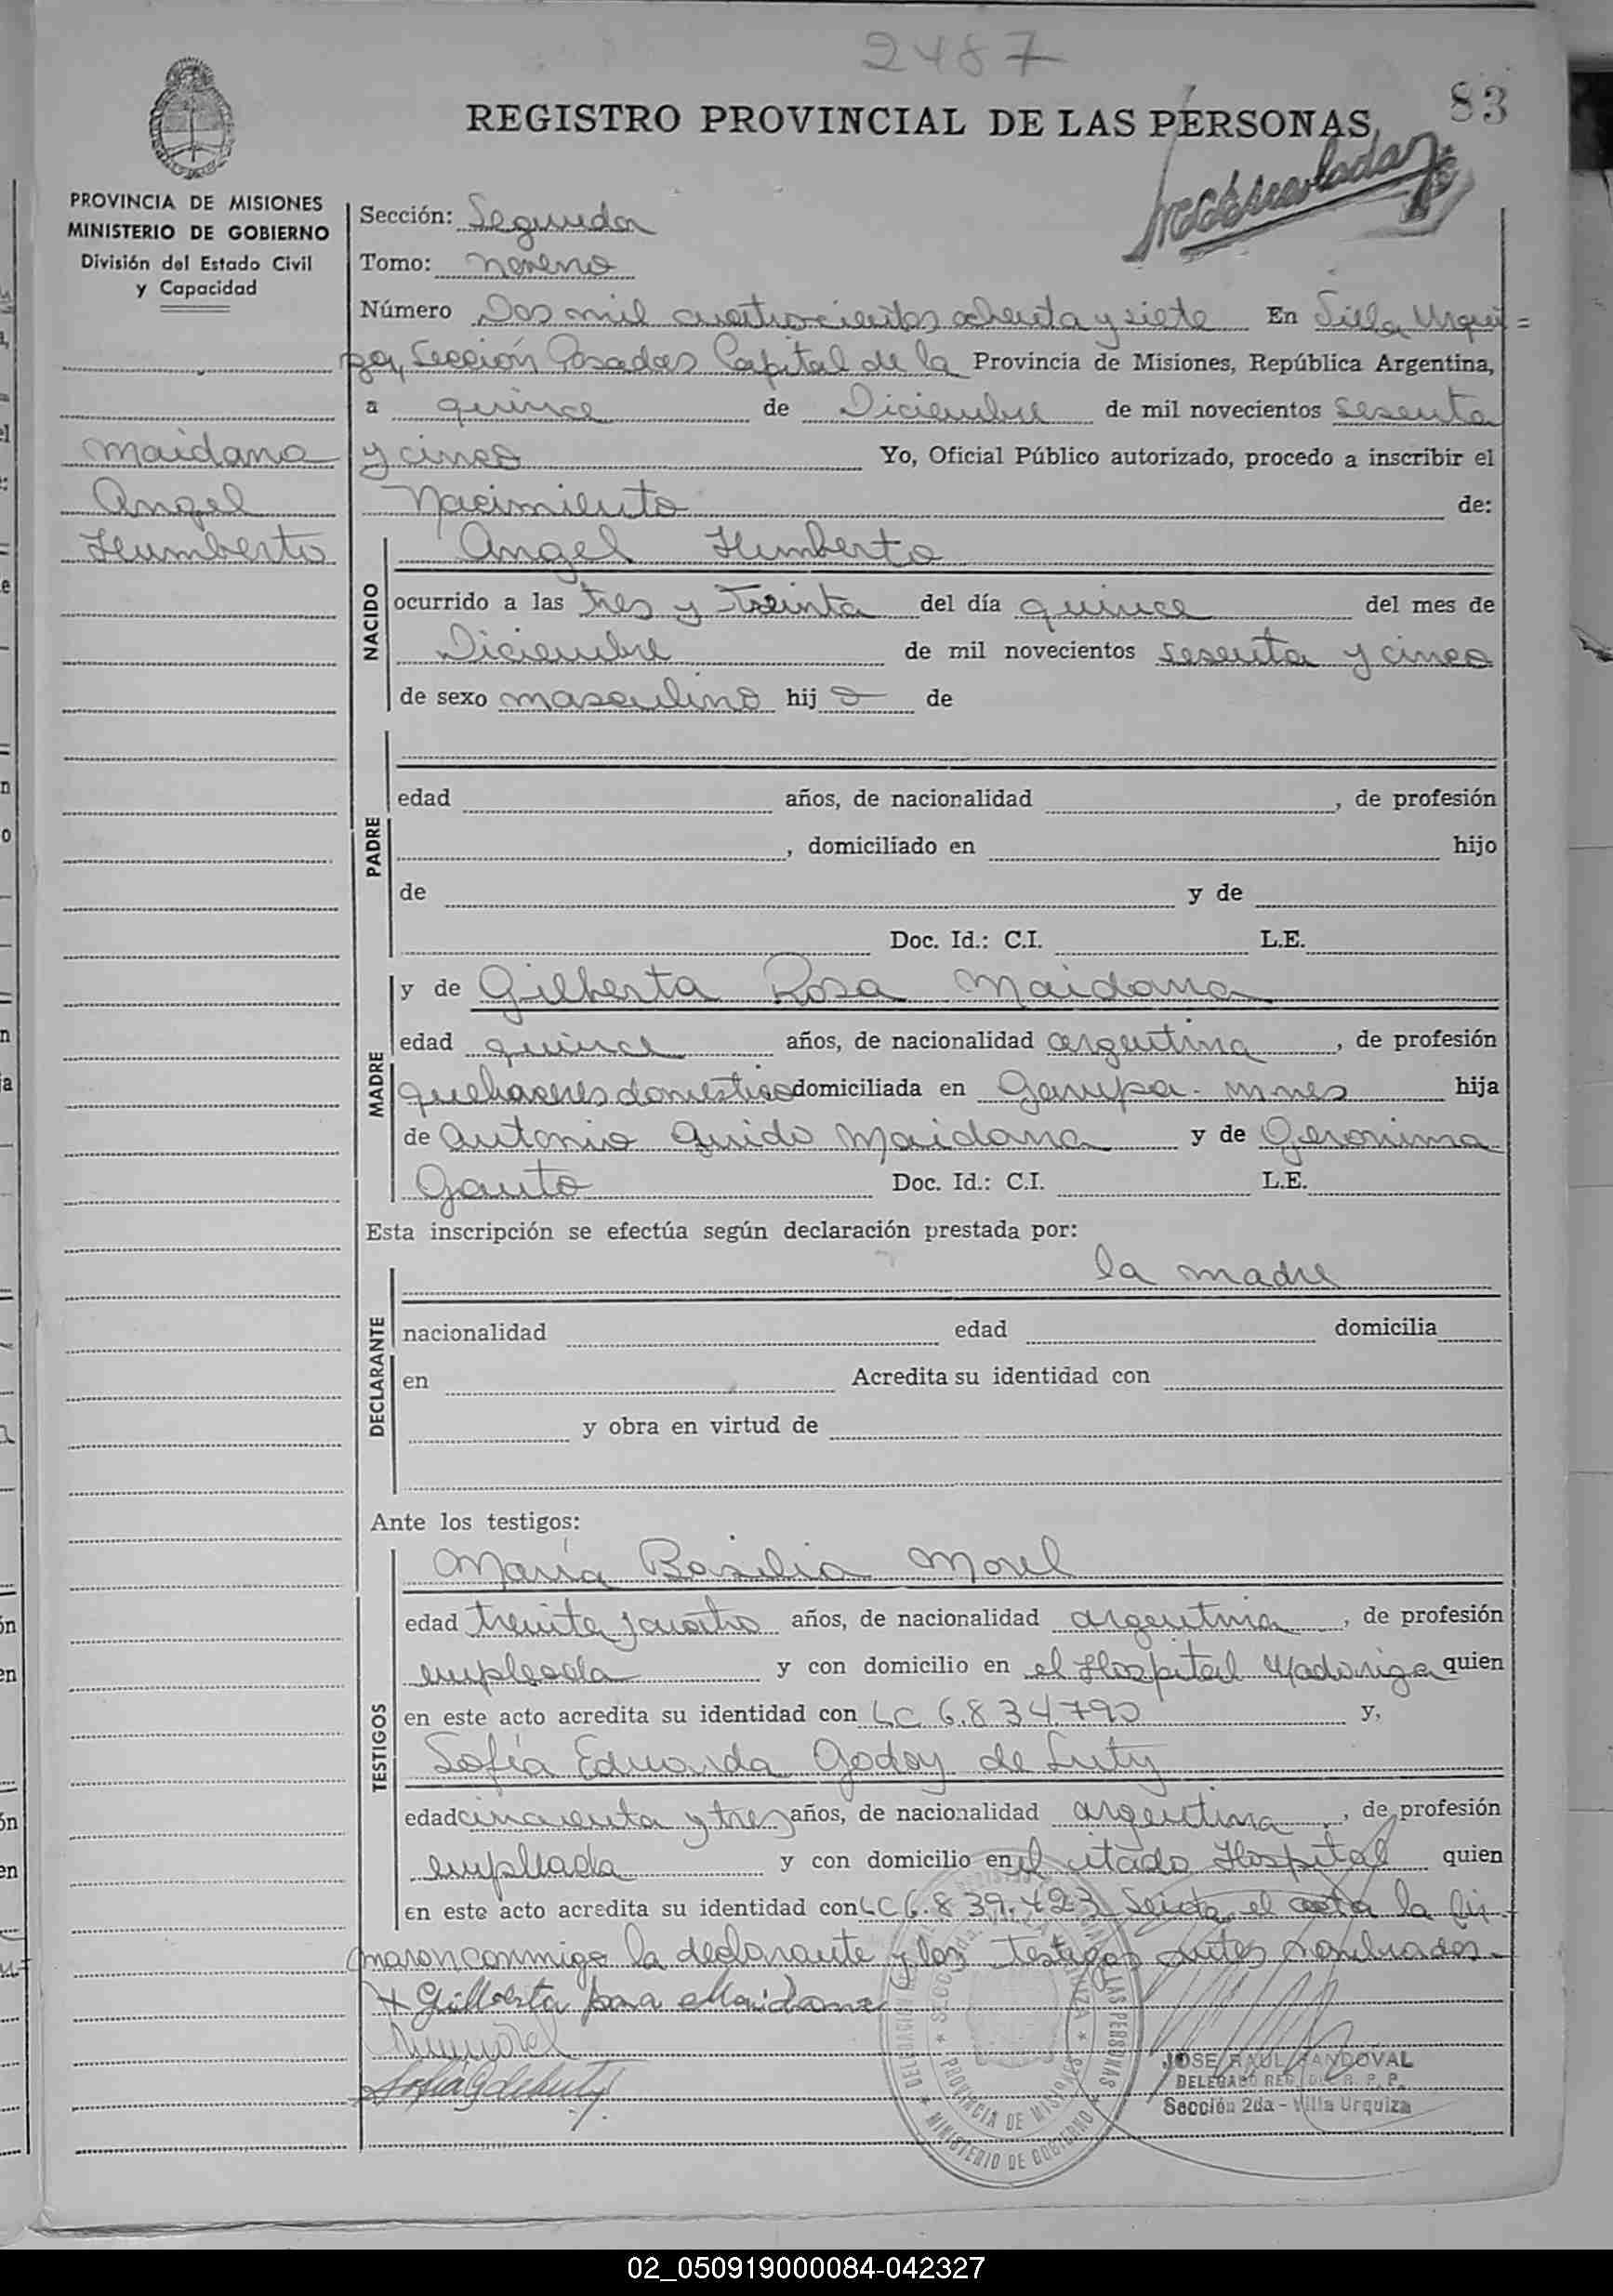 2487
83
REGISTRO PROVINCIAL DE LAS PERSONAS
PROVINCIA DE MISIONES
MINISTERIO DE GOBIERNO
División del Estado Civil
y Capacidad
Maidana
Angel
Humberto
Sección: Segunda
Tomo: Noveno
Número Dos mil cuatrocientos ochenta y siete En Villa Urqui=
za, Sección Posadas Capital de la Provincia de Misiones, República Argentina,
a quince de Diciembre de mil novecientos sesenta
y cinco Yo, Oficial Público autorizado, procedo a inscribir el
Nacimiento de:
NACIDO
Angel Humberto
ocurrido a las tres y treinta del día quince del mes de
Diciembre de mil novecientos sesenta y cinco
de sexo masculino hij o de
PADRE
edad años, de nacionalidad , de profesión
, domiciliado en hijo
de y de
Doc. Id.: C.I. L.E.
MADRE
y de Gilberta Rosa Maidana
edad quince años, de nacionalidad argentina , de profesión
quehaceres domestico domiciliada en Garupa - Mnes hija
de Antonio Guido Maidana y de Geronima
Gauto Doc. Id.: C.I. L.E.
Esta inscripción se efectúa según declaración prestada por:
DECLARANTE
la madre
nacionalidad edad domicilia
en Acredita su identidad con
y obra en virtud de
Ante los testigos:
TESTIGOS
María Basilia Morel
edad treinta y cuatro años, de nacionalidad argentina , de profesión
empleada y con domicilio en el Hospital Madariaga quien
en este acto acredita su identidad con LC 6.834.790 y,
Sofía Eduarda Godoy de Luty
edad cincuenta y tres años, de nacionalidad argentina , de profesión
empleada y con domicilio en el citado Hospital quien
en este acto acredita su identidad con LC 6.839.423 el acta la fir-
maron conmigo la declarante y los testigos antes nombrados.
Gilberta Maidana
JOSE RAUL SANDOVAL
DELEGADO REG. DEL R. P. P.
Sección 2da - Villa Urquiza
PROVINCIA DE MISIONES
MINISTERIO DE GOBIERNO
02_050919000084-042327